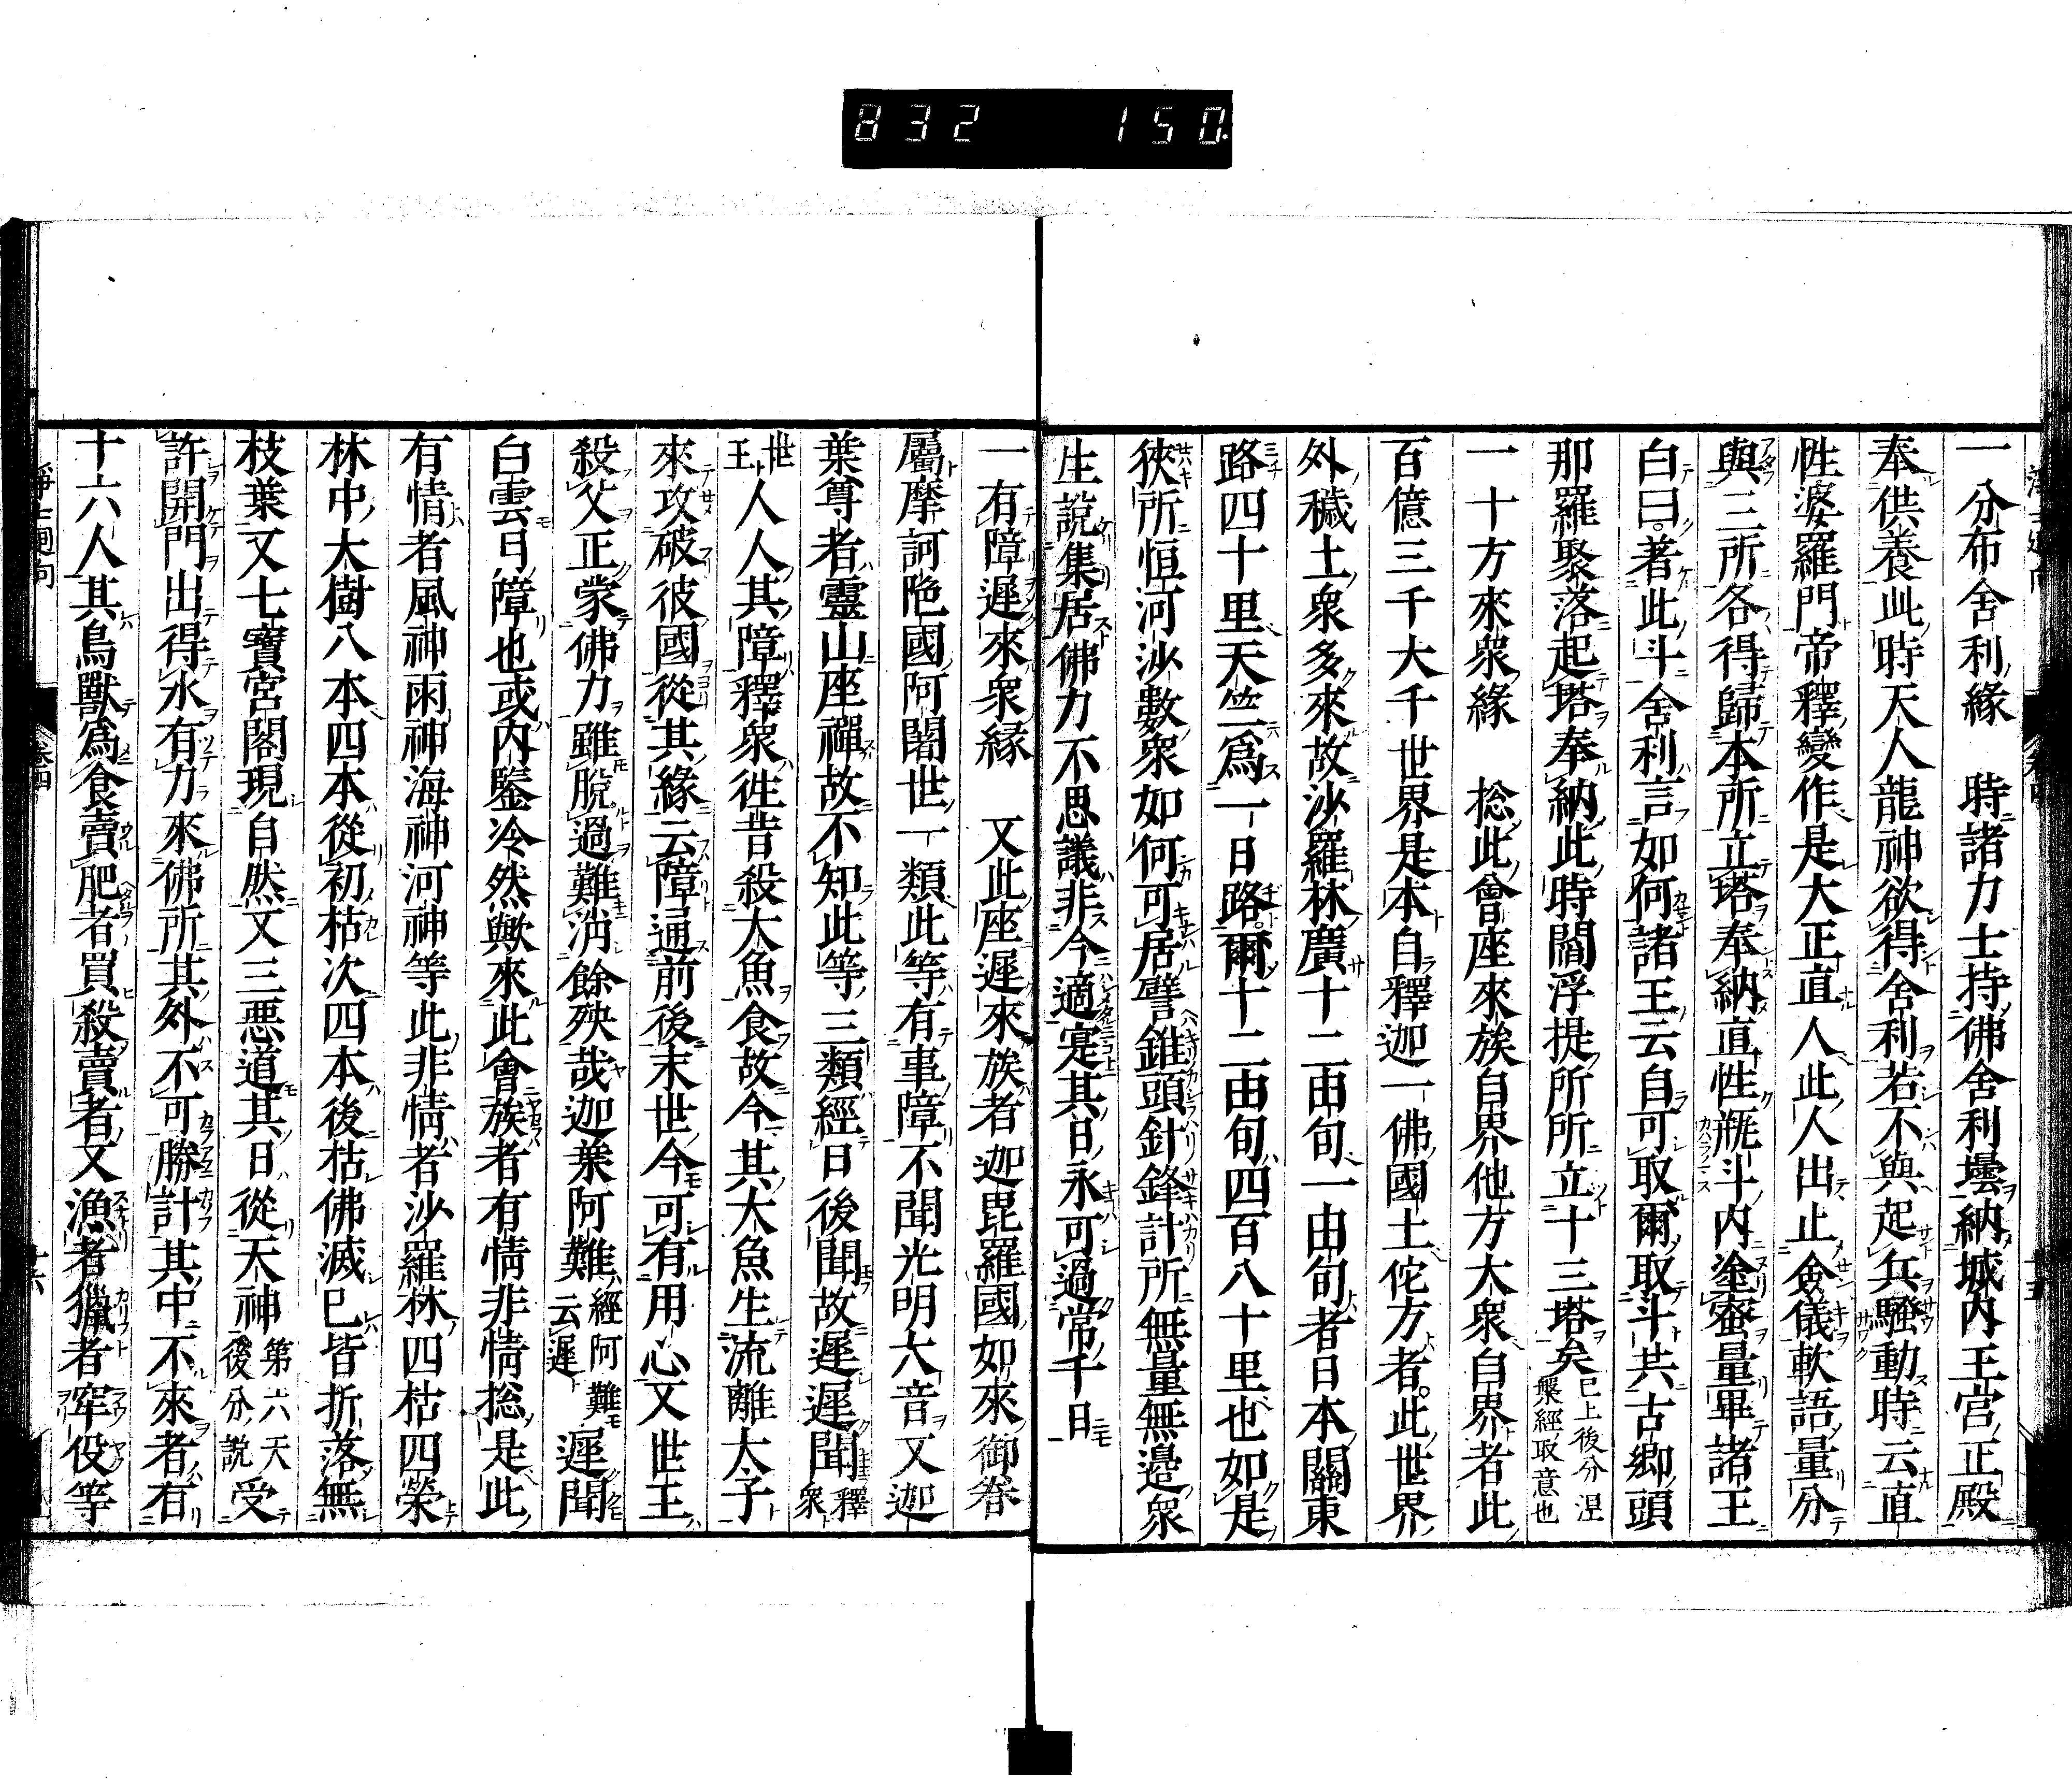 832 150
一分布舍利緣 時諸力士持佛舍利壜納城内王宮正殿
奉供養此時天人龍神欲得舍利若不與起兵騷動時云直
性婆羅門帝釋變作是大正直人此人出止僉儀軟語量分
與三所各得歸本所立塔奉納直性瓶斗内塗蜜量畢諸王
白曰著此斗舍利言如何諸王云自可取爾取斗共古鄉頭
那羅聚落起塔奉納此時閻浮提所所立十三塔矣已上後分涅槃經取意也
一十方來眾緣 捴此會座來族自界他方大衆自界者此
百億三千大千世界是本自釋迦一佛國土佗方者此世界
外穢土衆多來故沙羅林廣十二由旬一由旬者日本關東
路四十里天竺爲一日路爾十二由旬四百八十里也如是
狹所恒河沙數衆如何可居譬錐頭針鋒計所無量無邊衆
生說集居佛力不思議非今適寔其日永可過常千日
一有障遲來衆緣 又此座遲來族者迦毘羅國如來御眷
屬摩訶陁國阿闍世一類此等有事障不聞光明大音又迦
葉尊者靈山座禪故不知此等三類經日後聞故遲遲聞釋衆
世王人人其障釋衆徃昔殺大魚食故今其大魚生流離太子
來攻破彼國從其緣云障通前後末世今可有用心又世王
殺父正蒙佛力雖脫過難消餘殃哉迦葉阿難經阿難云遲遲聞
白雲日障也或内鑒冷然歟來此會族者有情非情捴是此
有情者風神雨神海神河神等此非情者沙羅林四枯四榮
林中大樹八本四本從初枯次四本後枯佛滅已皆折落無
枝葉又七寳宮閣現自然又三惡道其日從天神第六天後分說受
許開門出得水有力來佛所其外不可勝計其中不來者有
十六人其鳥獸爲食賣肥者買殺賣者又漁者獵者窂役等